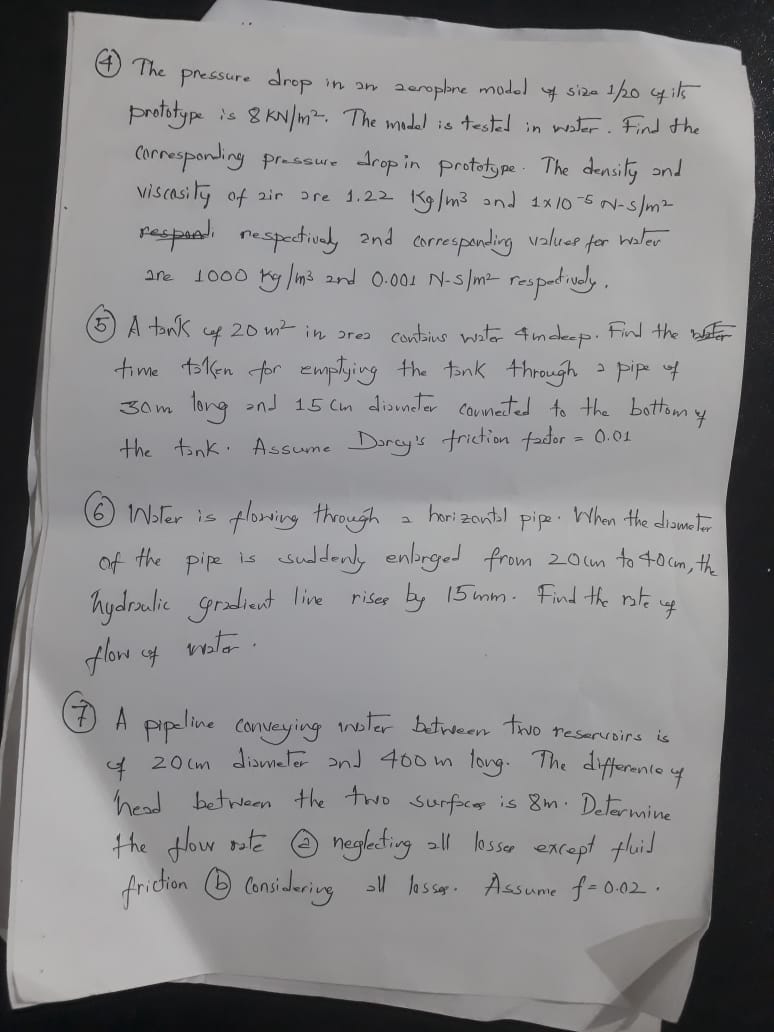 ④ The pressure drop in an aeroplane model of size 1/20 of its
prototype is 8 KN/m². The model is tested in water. Find the
Corresponding pressure drop in prototype. The density and
viscosity of air are 1.22 Kg/m³ and 1x10⁻⁵ N-s/m²
respectively and corresponding values for water
are 1000 Kg/m³ and 0.001 N-s/m² respectively.
⑤ A tank of 20 m² in area contains water 4m deep. Find the
time taken for emptying the tank through a pipe of
30m long and 15 cm diameter connected to the bottom of
the tank. Assume Darcy's friction factor = 0.01
⑥ Water is flowing through a horizontal pipe. When the diameter
of the pipe is suddenly enlarged from 20cm to 40cm, the
hydraulic gradient line rises by 15mm. Find the rate of
flow of water.
⑦ A pipeline conveying water between two reservoirs is
of 20cm diameter and 400 m long. The difference of
head between the two surfaces is 8m. Determine
the flow rate ⓐ neglecting all losses except fluid
friction ⓑ Considering all losses. Assume f = 0.02.